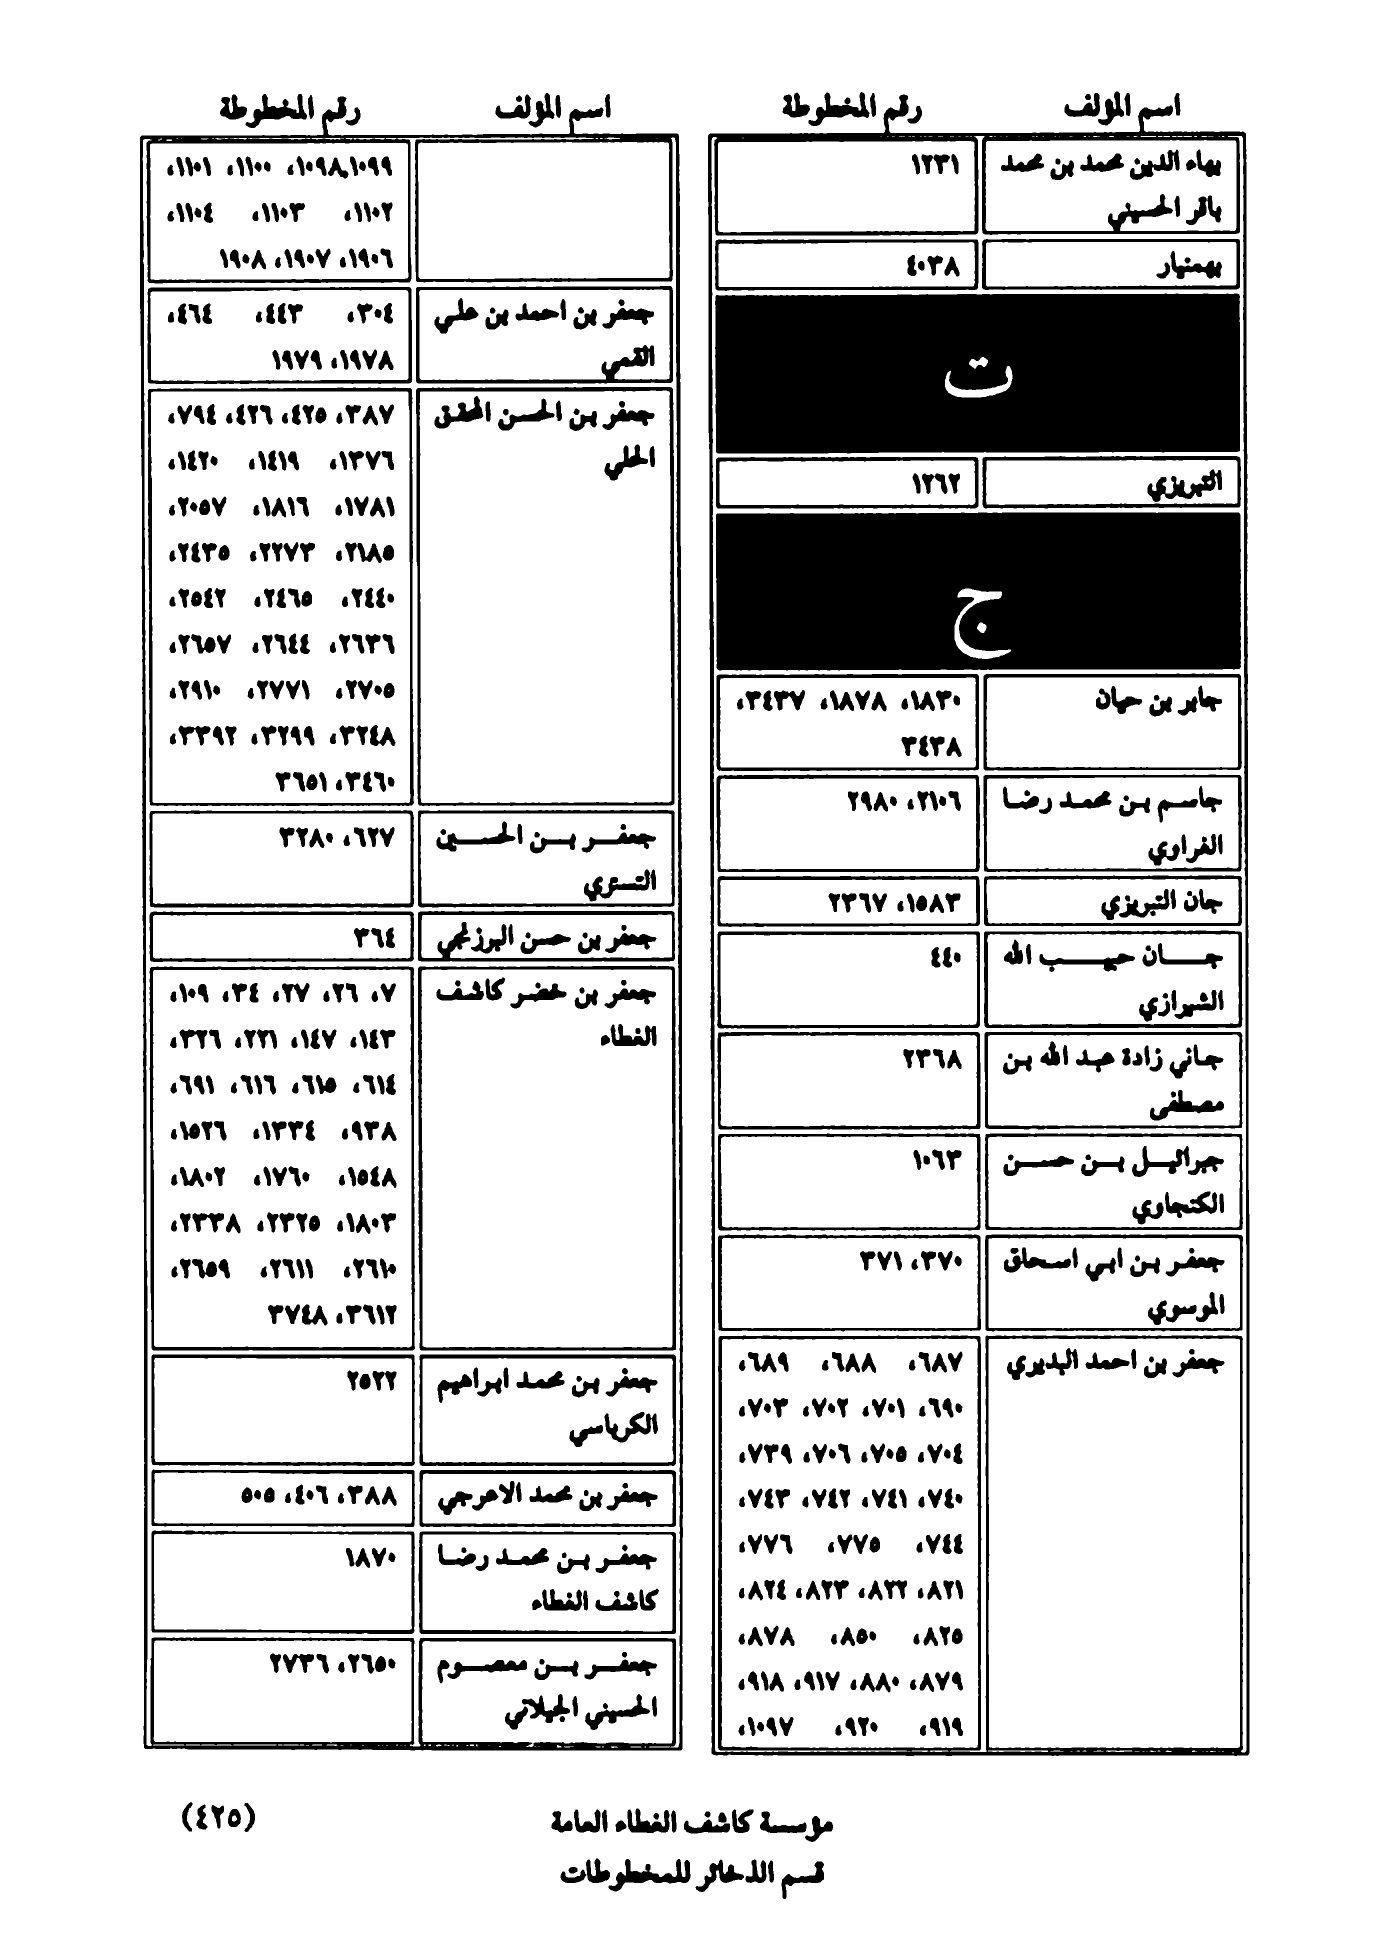 اسم المؤلف رقم المخطوطة
بهاء الدين محمد بن محمد ١٢٣١
باقر الحسيني
بهمنيار ٤٠٣٨
ت
التبريزي ١٢٦٢
ج
جابر بن حيان ١٨٣٠، ١٨٧٨، ٣٤٣٧،
٣٤٣٨
جاسم بن محمد رضا ٢١٠٦، ٢٩٨٠
الغراوي
جان التبريزي ١٥٨٣، ٢٣٦٧
جان حبيب الله ٤٤٠
الشيرازي
جاني زادة عبد الله بن ٢٣٦٨
مصطفى
جبرائيل بن حسن ١٠٦٣
الكنجاوي
جعفر بن ابي اسحاق ٣٧٠، ٣٧١
الموسوي
جعفر بن احمد البديري ٦٨٧، ٦٨٨، ٦٨٩،
٦٩٠، ٧٠١، ٧٠٢، ٧٠٣،
٧٠٤، ٧٠٥، ٧٠٦، ٧٣٩،
٧٤٠، ٧٤١، ٧٤٢، ٧٤٣،
٧٤٤، ٧٧٥، ٧٧٦،
٨٢١، ٨٢٢، ٨٢٣، ٨٢٤،
٨٢٥، ٨٥٠، ٨٧٨،
٨٧٩، ٨٨٠، ٩١٧، ٩١٨،
٩١٩، ٩٢٠، ١٠٩٧،
اسم المؤلف رقم المخطوطة
١٠٩٨,١٠٩٩، ١١٠٠، ١١٠١،
١١٠٢، ١١٠٣، ١١٠٤،
١٩٠٦، ١٩٠٧، ١٩٠٨
جعفر بن احمد بن علي ٣٠٤، ٤٤٣، ٤٦٤،
القمي ١٩٧٨، ١٩٧٩
جعفر بن الحسن المحقق ٣٨٧، ٤٢٥، ٤٢٦، ٧٩٤،
الحلي ١٣٧٦، ١٤١٩، ١٤٢٠،
١٧٨١، ١٨١٦، ٢٠٥٧،
٢١٨٥، ٢٢٧٣، ٢٤٣٥،
٢٤٤٠، ٢٤٦٥، ٢٥٤٢،
٢٦٣٦، ٢٦٤٤، ٢٦٥٧،
٢٧٠٥، ٢٧٧١، ٢٩١٠،
٣٢٤٨، ٣٢٩٩، ٣٣٩٢،
٣٤٦٠، ٣٦٥١
جعفر بن الحسين ٦٢٧، ٣٢٨٠
التستري
جعفر بن حسن البرزنجي ٣٦٤
جعفر بن خضر كاشف ٧، ٢٦، ٢٧، ٣٤، ١٠٩،
الغطاء ١٤٣، ١٤٧، ٢٢١، ٣٢٦،
٦١٤، ٦١٥، ٦١٦، ٦٩١،
٩٣٨، ١٣٣٤، ١٥٢٦،
١٥٤٨، ١٧٦٠، ١٨٠٢،
١٨٠٣، ٢٣٢٥، ٢٣٣٨،
٢٦١٠، ٢٦١١، ٢٦٥٩،
٣٦١٢، ٣٧٤٨
جعفر بن محمد ابراهيم ٢٥٢٢
الكرباسي
جعفر بن محمد الاعرجي ٣٨٨، ٤٠٦، ٥٠٥
جعفر بن محمد رضا ١٨٧٠
كاشف الغطاء
جعفر بن معصوم ٢٦٥٠، ٢٧٣٦
الحسيني الجيلاني
مؤسسة كاشف الغطاء العامة (٤٢٥)
قسم الذخائر للمخطوطات